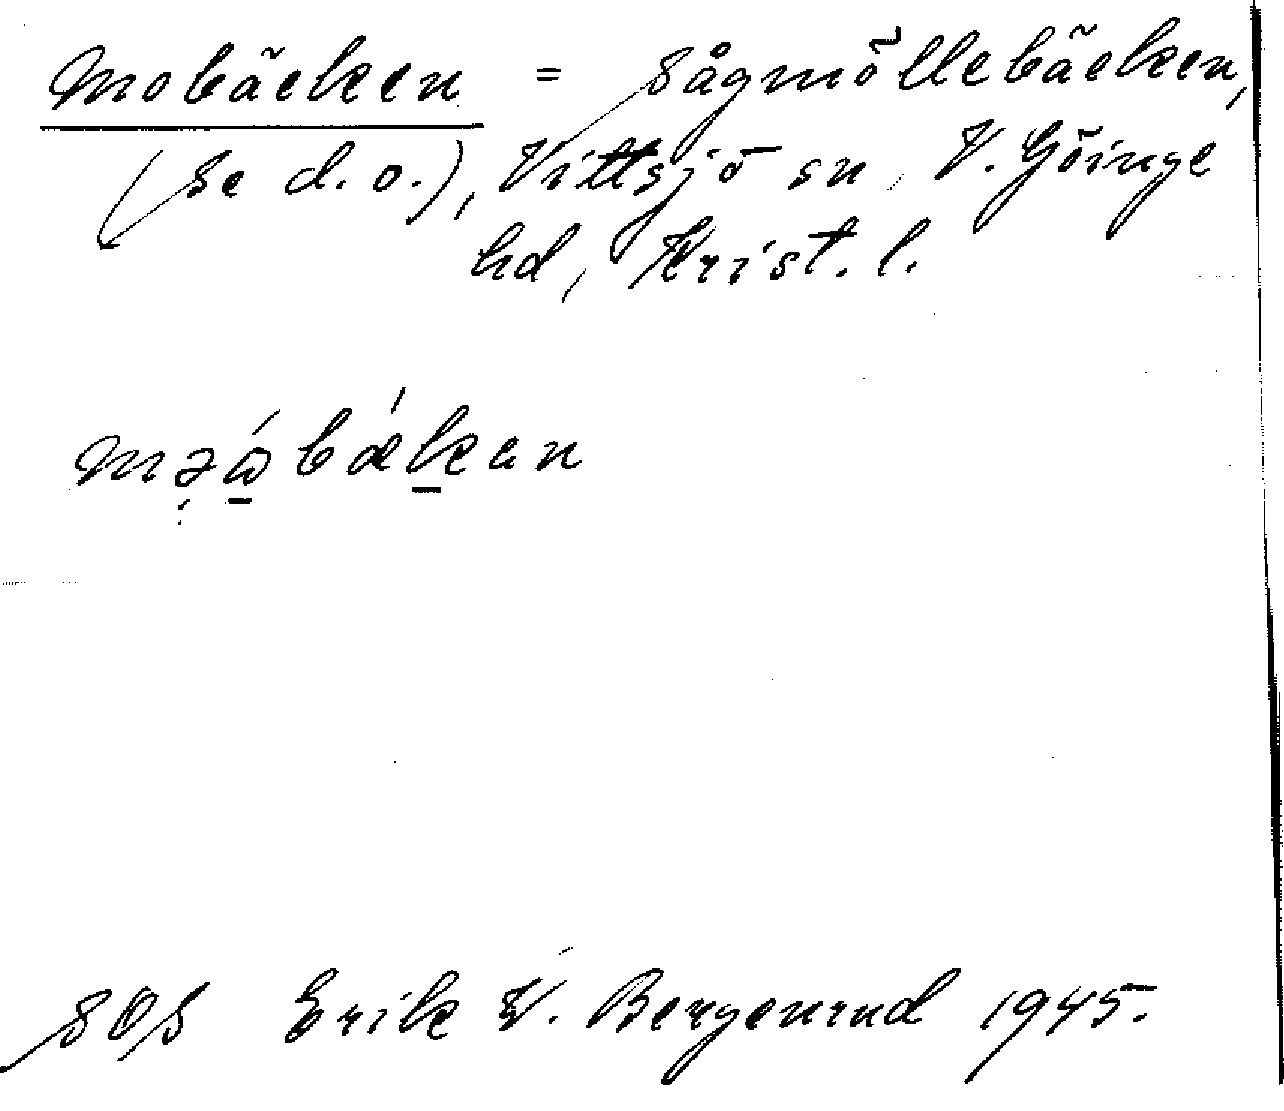 Mobäcken = Sågmöllebäcken,
(Se d. o.), Vittsjö sn, V. Göinge
hd, Krist. l.
məώbǽkan
SOS Erik V. Bergenrud 1945.